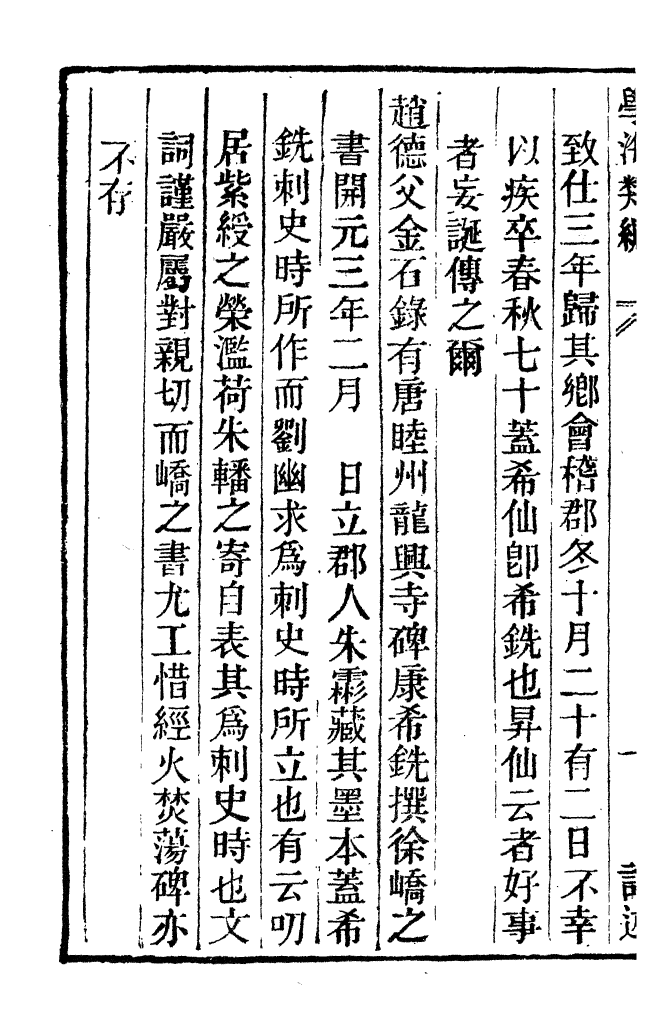 學海類編
一
致仕三年歸其鄉會稽郡冬十月二十有二日不幸
以疾卒春秋七十蓋希仙卽希銑也昇仙云者好事
者妄誕傳之爾
趙德父金石錄有唐睦州龍興寺碑康希銑撰徐嶠之
書開元三年二月　日立郡人朱霦藏其墨本蓋希
銑刺史時所作而劉幽求爲刺史時所立也有云叨
居紫綬之榮濫荷朱轓之寄自表其爲刺史時也文
詞謹嚴屬對親切而嶠之書尤工惜經火焚蕩碑亦
不存